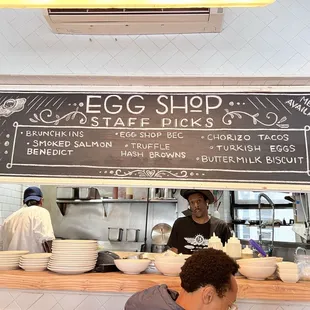 EGG SHOP
STAFF PICKS
BRUNCKINS
SMOKED SALMON
BENEDICT
EGG SHOP BEC
TRUFFLE
HASH BROWNS
CHORIZO TACOS
TURKISH EGGS
BUTTERMILK BISCUIT